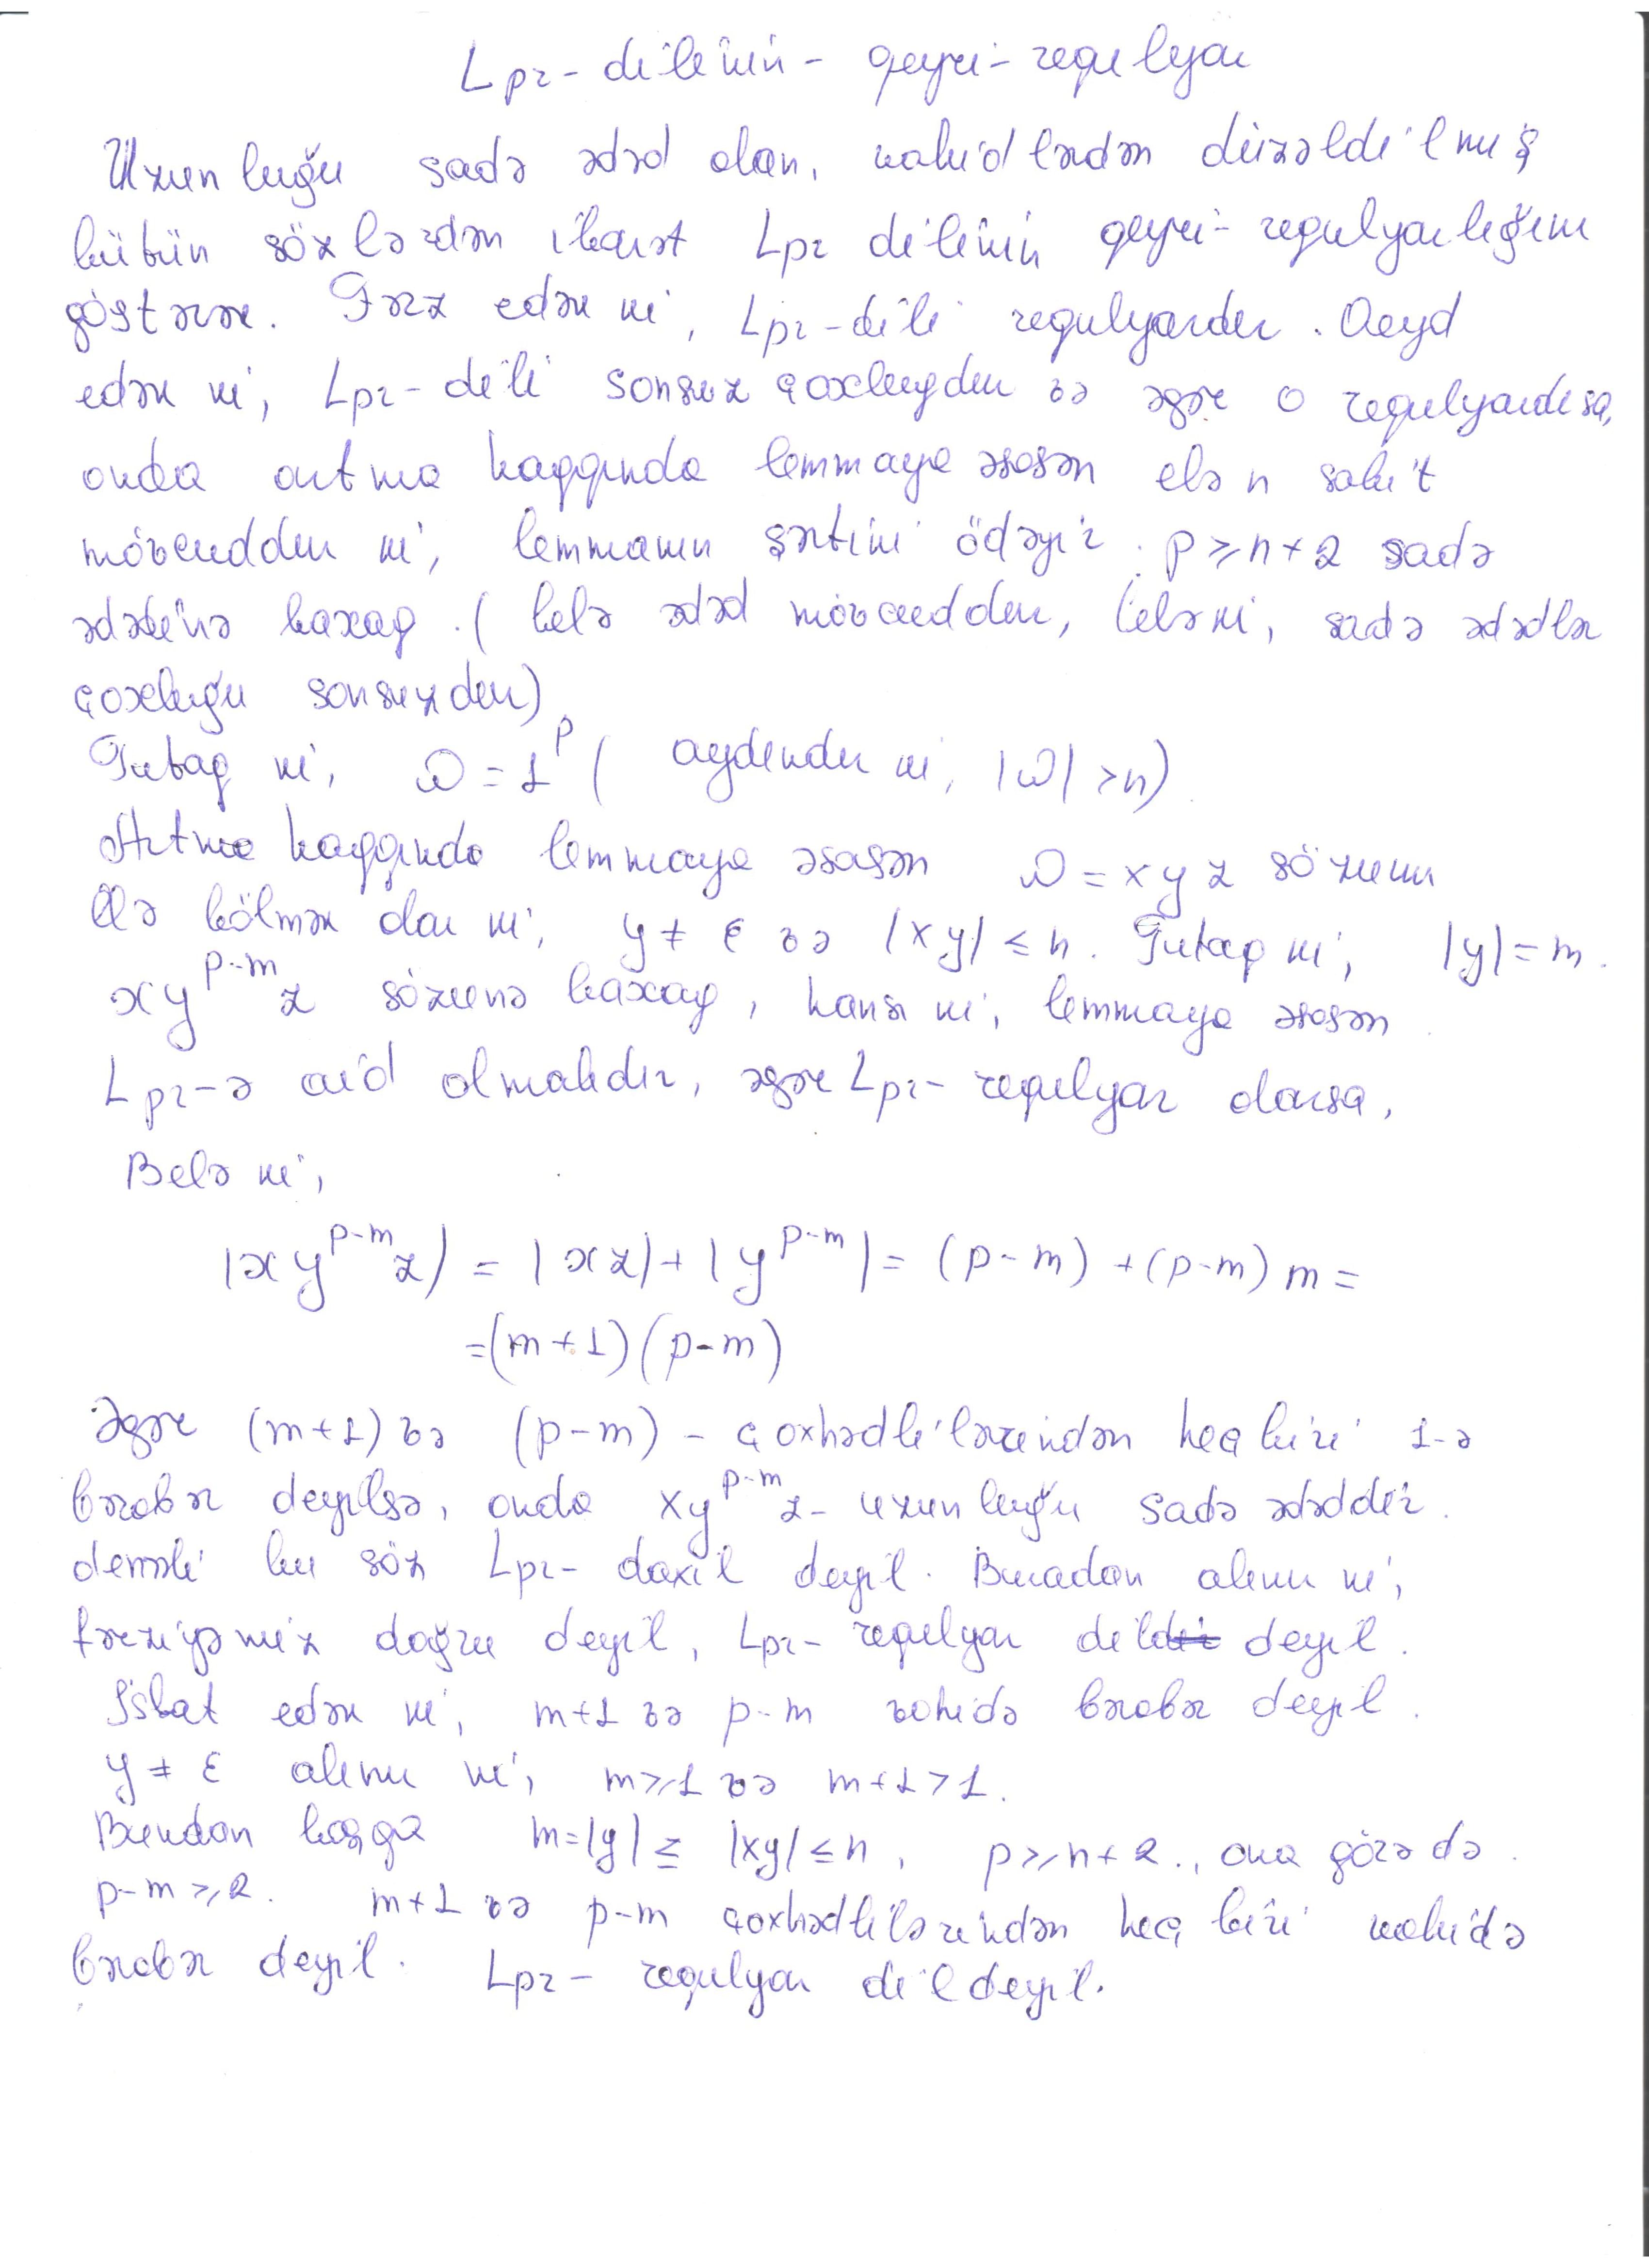 Lpr-dilinin - qeyri-requlyar
Uzunluğu sadə ədəd olan, vahidlərdən düzəldilmiş
bütün sözlərdən ibarət Lpr dilinin qeyri-requlyarlığını
göstərək. Fərz edək ki, Lpr-dili requlyardır. Qeyd
edək ki, Lpr-dili sonsuz çoxluqdur və əgər o requlyardısa,
onda artma haqqında lemmaya əsasən elə n sabit
mövcuddur ki, lemmanın şərtini ödəyir. p ≥ n+2 sadə
ədədinə baxaq. (belə ədəd mövcuddur, belə ki, sadə ədədlər
çoxluğu sonsuzdur)
Tutaq ki, ω = 1^p (aydındır ki, |ω| > n)
Artma haqqında lemmaya əsasən ω = xyz sözünü
elə bölmək olar ki, y ≠ ε və |xy| ≤ n. Tutaq ki, |y| = m.
xy^{p-m}z sözünə baxaq, hansı ki, lemmaya əsasən
Lpr-ə aid olmalıdır, əgər Lpr- requlyar olarsa,
Belə ki,
|xy^{p-m}z| = |xz| + |y^{p-m}| = (p-m) + (p-m)m =
=(m+1)(p-m)
Əgər (m+1) və (p-m) - çoxhədlilərindən heç biri 1-ə
bərabər deyilsə, onda xy^{p-m}z- uzunluğu sadə ədəddir.
deməli bu söz Lpr- daxil deyil. Buradan alırıq ki,
fərziyəmiz doğru deyil, Lpr- requlyar dil deyil.
İsbat edək ki, m+1 və p-m vahidə bərabər deyil.
y ≠ ε alırıq ki, m ≥ 1 və m+1 > 1.
Bundan başqa m = |y| ≤ |xy| ≤ n, p ≥ n+2., ona görə də
p-m ≥ 2. m+1 və p-m çoxhədlilərindən heç biri vahidə
bərabər deyil. Lpr- requlyar dil deyil.